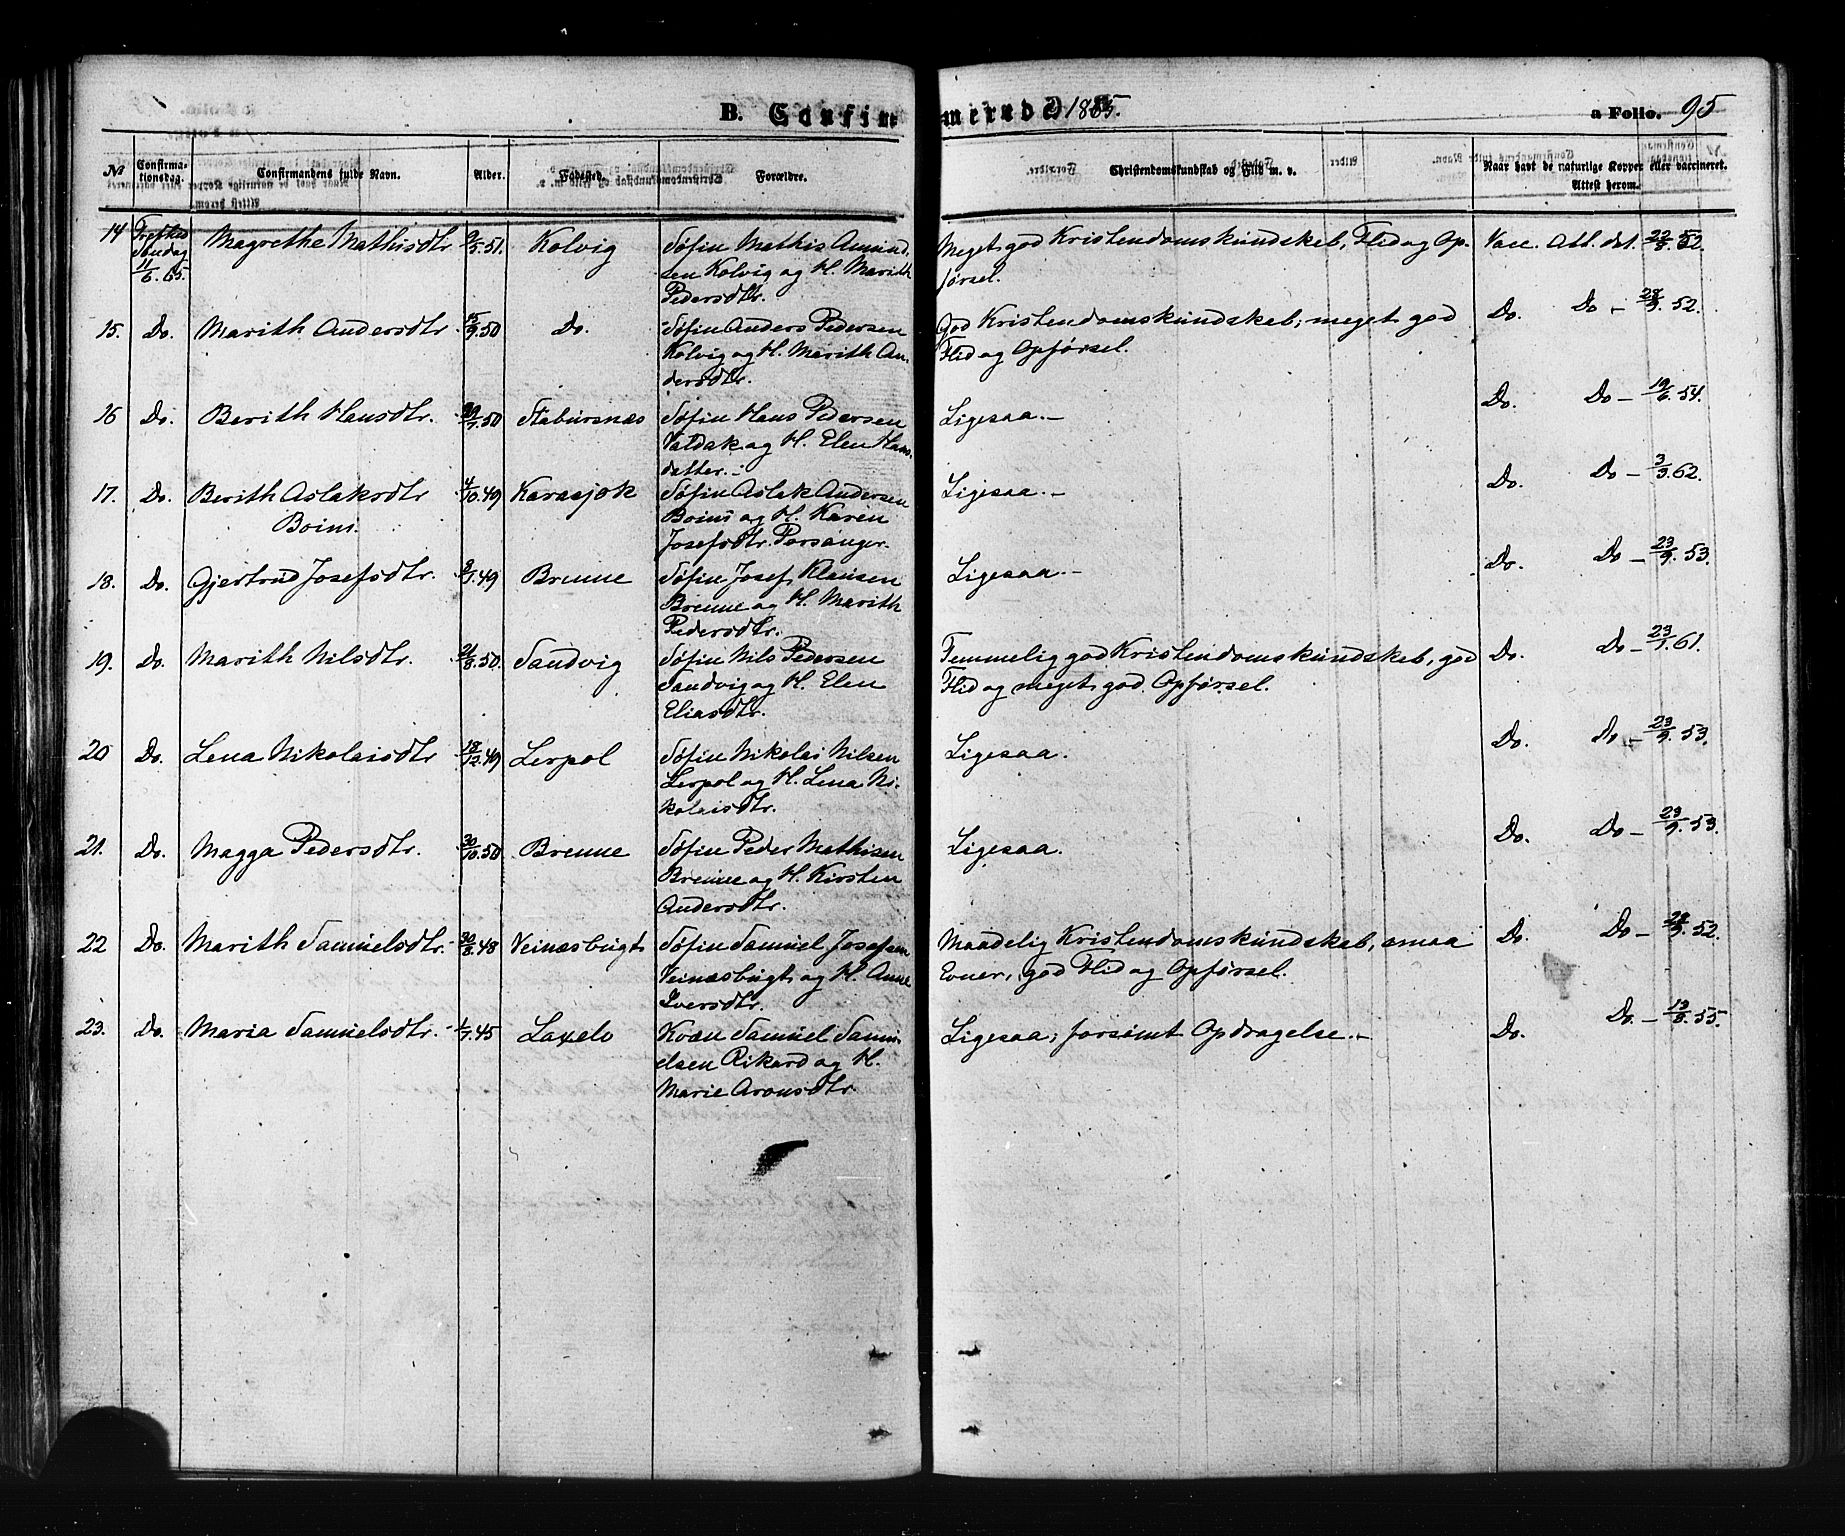 B. Confirmerende 1865. a Folio. 95
№ Confirmationsdag. Confirmandens fulde Navn. Alder. Fødested. Forældre. Christendomskundskab og Flid m. v. Naar havt de naturlige Kopper eller vaccineret. Attest herom.
14 Trefked Søndag 11/6.65. Magrethe Mathisdtr. Kolvig Søfin Mathis Amund-
sen Kolvig og H. Marith
Pedersdtr. Meget god Kristendomskundskab, Flid og Op-
førsel. Vacc. Att. dat. 22/8.52.
15. Do. Marith Andersdtr. 15/9.50 Do. Søfin Anders Pedersen
Kolvig og H. Marith An-
dersdtr. God Kristendomskundskab; meget god
Flid og Opførsel. Do. Do – 28/9.52.
16 Do. Berith Hansdtr. Stabursnæs Søfin Hans Pedersen
Valdak og H. Elen Hans-
datter. Ligesaa. Do. Do – 19/6.54.
17. Do. Berith Aslaksdtr
Boini. 4/10.49 Karasjok Søfin Aslak Andersen
Boini og H. Karen
Josefsdtr. Porsanger. Ligesaa. Do. Do – 3/3.62.
18. Do. Gjertrud Josefsdtr. 8/7.49 Brenne Søfin Josef Klausen
Brenne og H. Marith
Pedersdtr. Ligesaa. Do. Do – 23/9.53.
19. Do. Marith Nilsdtr. 21/8.50. Sandvig Søfin Nils Pedersen
Sandvig og H. Elen
Eliasdtr. Temmelig god Kristendomskundskab, god
Flid og meget god Opførsel. Do. Do – 23/7.61.
20 Do. Lena Nikolaisdtr 18/12.49 Lerpol Søfin Nikolai Nilsen
Lerpol og H. Lena Ni-
kolaisdtr. Ligesaa. Do. Do – 23/9.53.
21. Do. Magga Pedersdtr. 30/10.50 Brenne Søfin Peder Mathisen
Brenne og H. Kirsten
Andersdtr. Ligesaa. Do. Do – 23/9.53.
22 Do. Marith Samuelsdtr. 30/8.48 Veinæsbugt Søfin Samuel Josefsen
Veinæsbugt og H. Anne
Iversdtr. Maadelig Kristendomskundskab, smaa
Evner, god Flid og Opførsel. Do. Do – 28/9.52.
23. Do. Maria Samuelsdtr. 1/7.45 Laxelv Kvæn Samuel Samu-
elsen Rikard og H.
Marie Aronsdtr. Ligesaa; forsømt Opdragelse. Do. Do. – 13/8.55.